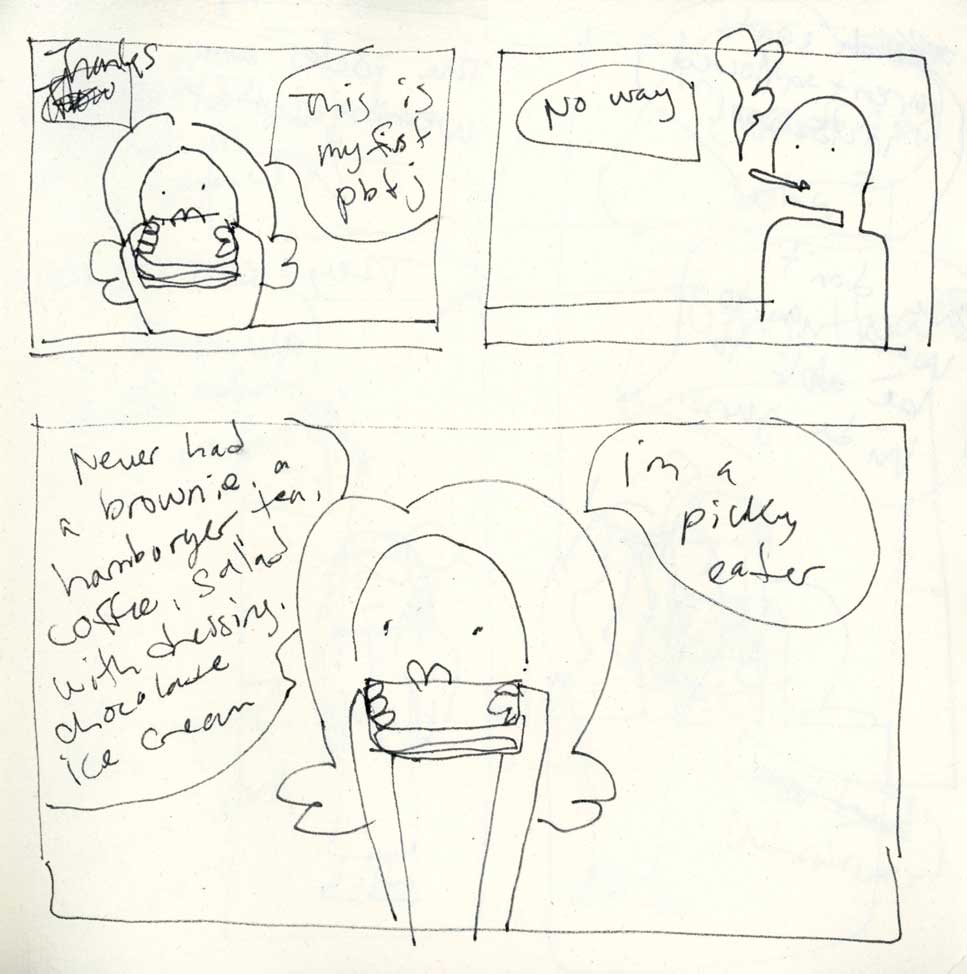 Thanks
This is
my first
pb+j
No way
Never had
a brownie, a
hamburger, tea,
coffee, salad
with dressing.
chocolate
ice cream
i'm a
picky
eater